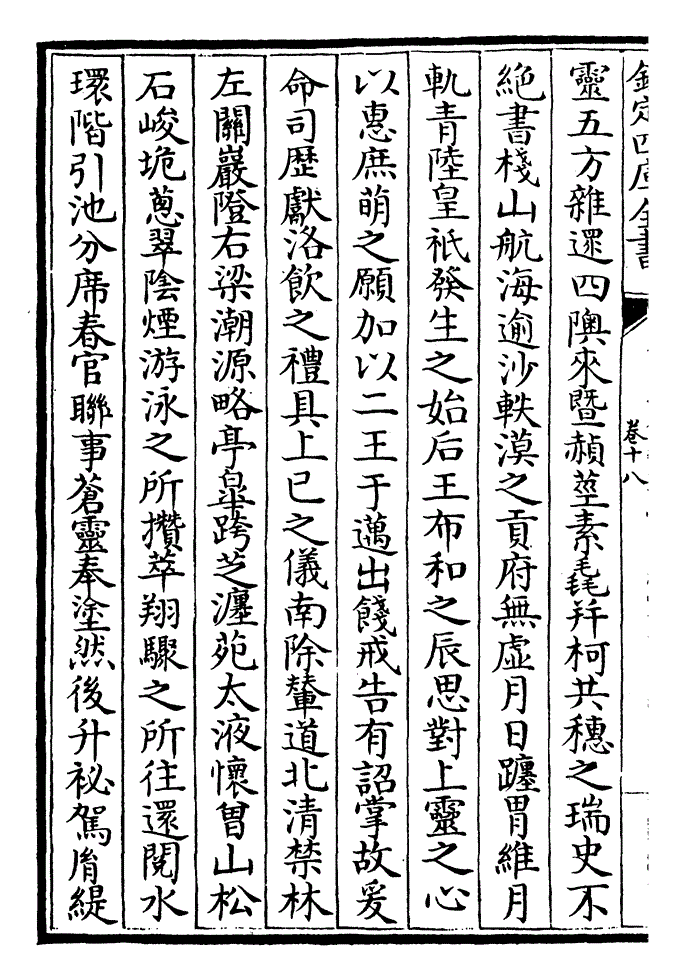 欽定四庫全書
卷十八
靈五方雜還四隩來暨赬莖素毳幷柯共穗之瑞史不
絶書棧山航海逾沙軼漠之貢府無虚月日躔胃維月
軌青陸皇祇發生之始后王布和之辰思對上靈之心
以惠庶萌之願加以二王于邁出餞戒告有詔掌故爰
命司歴獻洛飲之禮具上巳之儀南除輦道北清禁林
左關巖隥右梁潮源略亭臯跨芝㢆苑太液懷曾山松
石峻垝蔥翠陰煙游泳之所攢萃翔驟之所往還閲水
環階引池分席春官聯事蒼靈奉塗然後升祕駕㣧緹